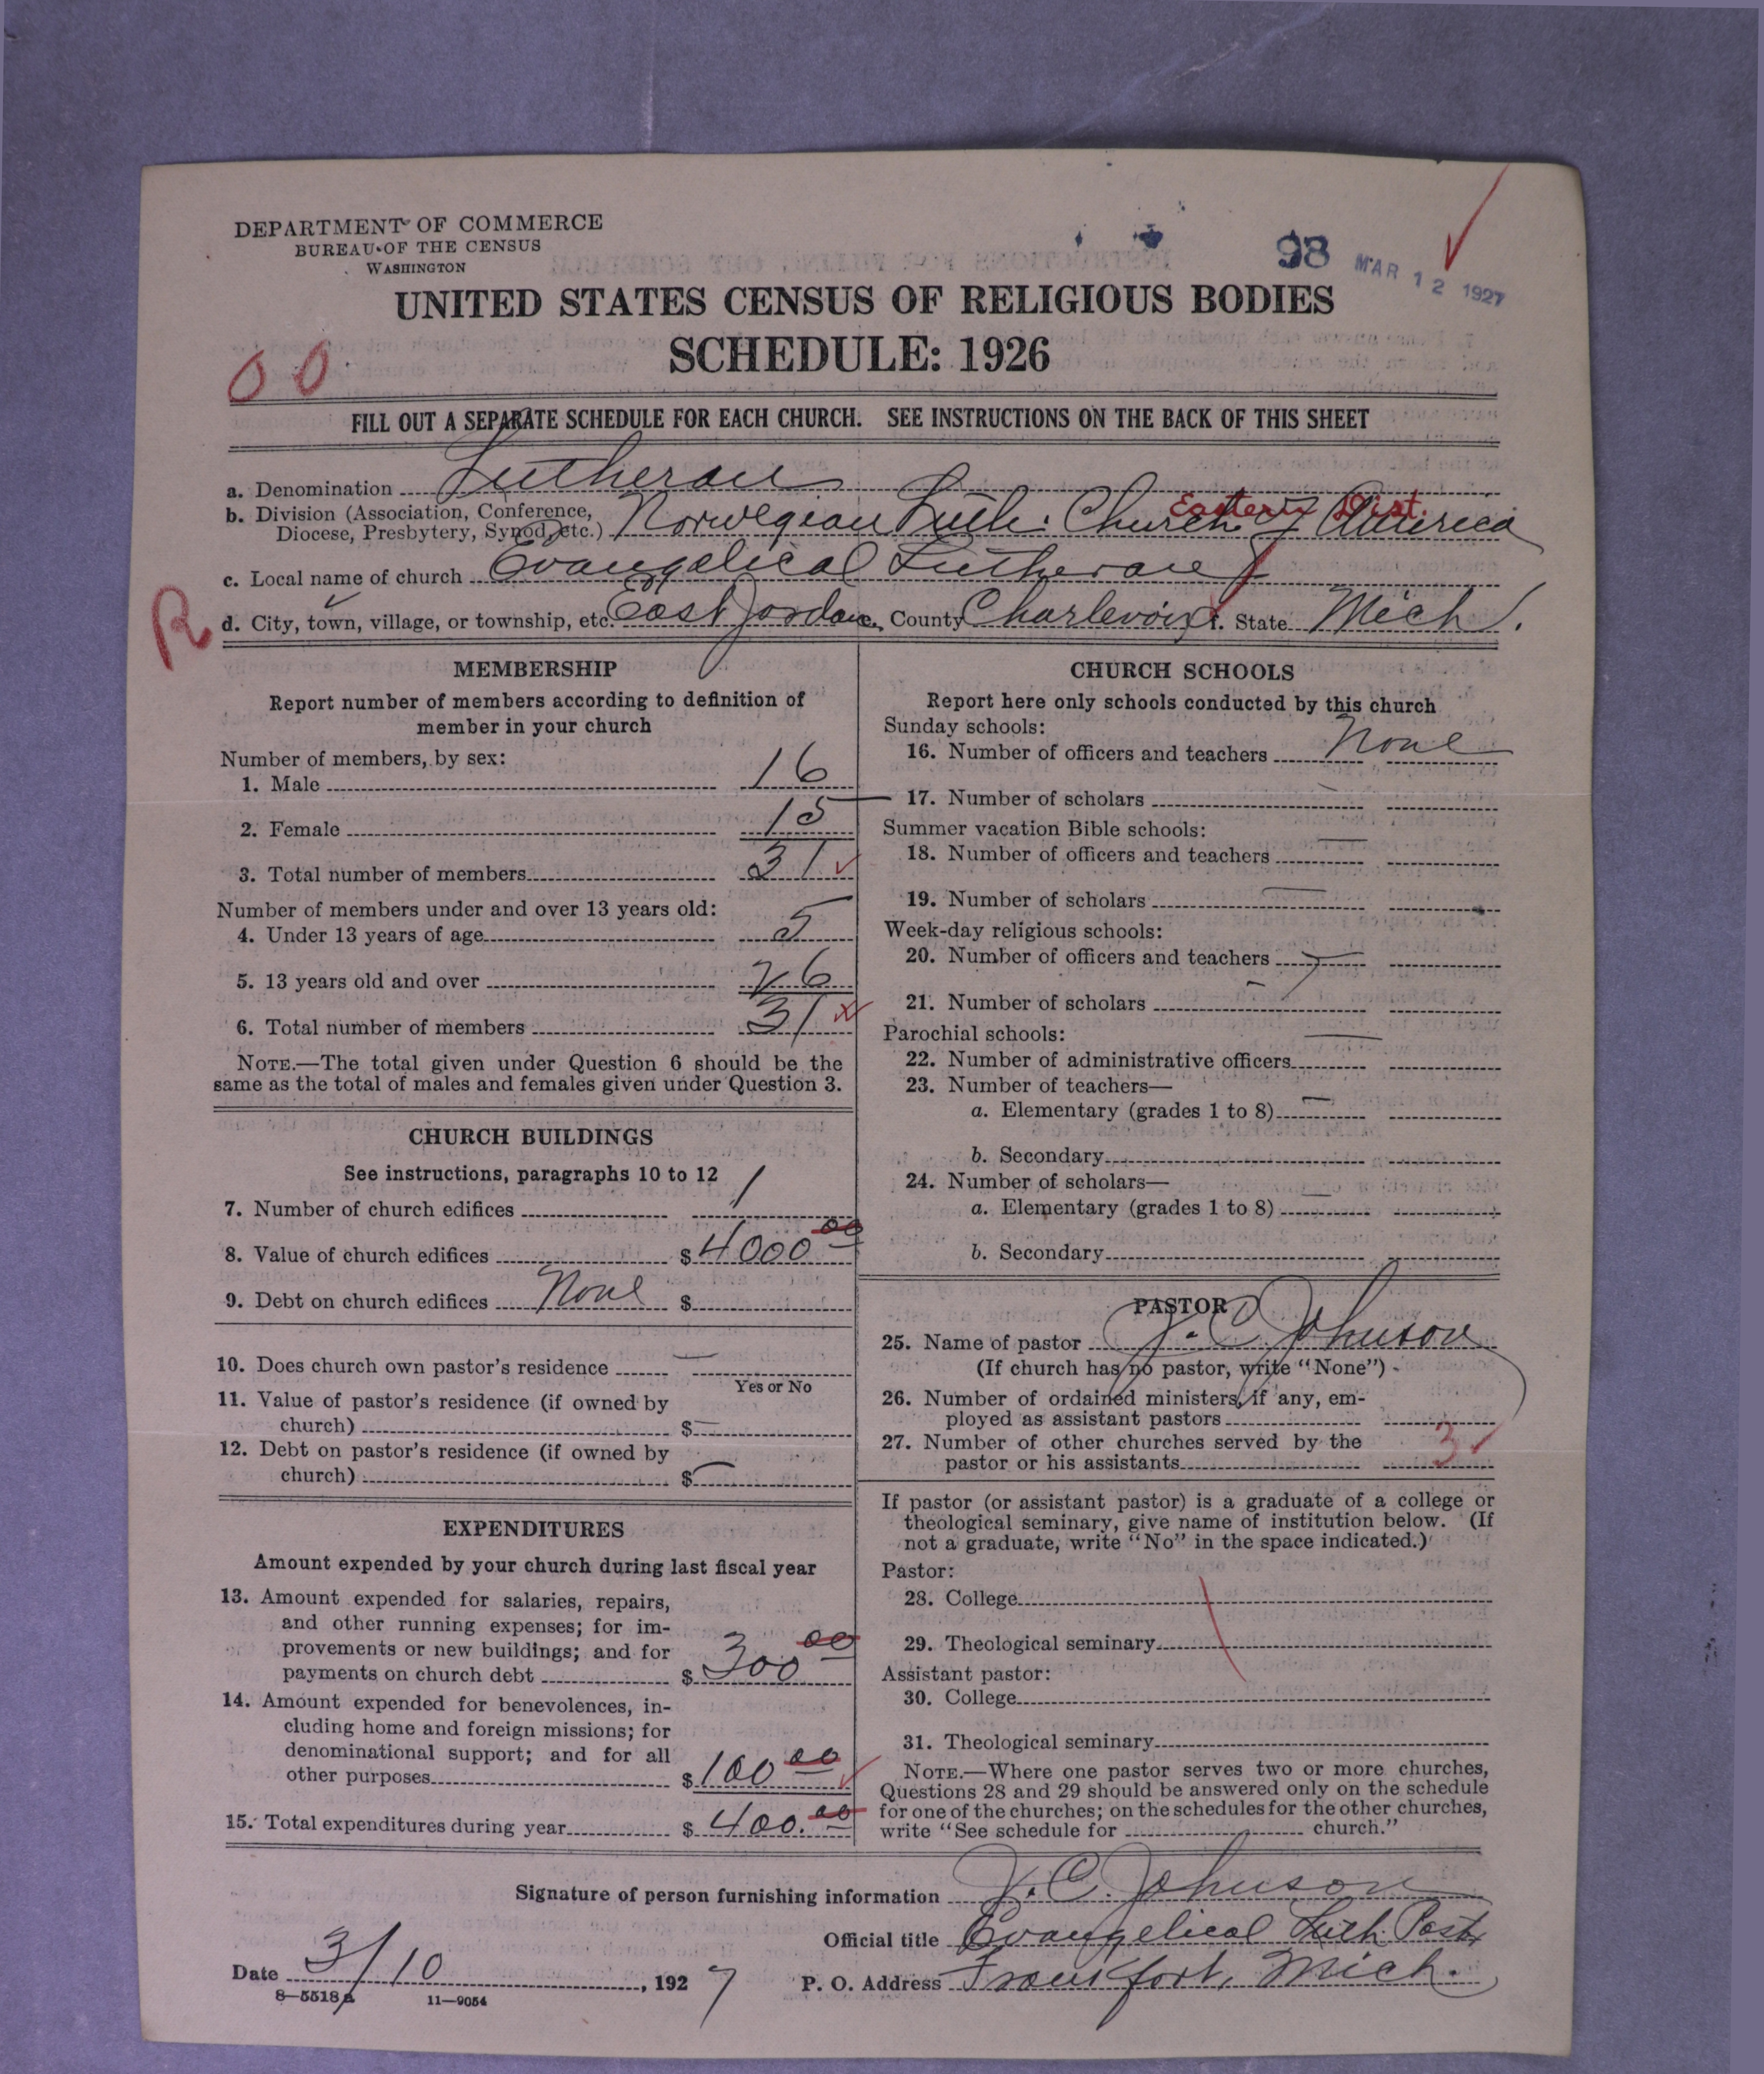 DEPARTMENT OF COMMERCE
BUREAU OF THE CENSUS
WASHINGTON
98 MAR 12 1927
UNITED STATES CENSUS OF RELIGIOUS BODIES
SCHEDULE: 1926
00
FILL OUT A SEPARATE SCHEDULE FOR EACH CHURCH. SEE INSTRUCTIONS ON THE BACK OF THIS SHEET
a. Denomination Lutheran
Eastern Dist.
b. Division (Association, Conference,
Diocese, Presbytery, Synod, etc.) Norwegian Luth. Church of America
c. Local name of church Evangelical Lutheran
R
d. City, town, village, or township, etc. East Jordan County Charlevoix State Mich.
MEMBERSHIP
Report number of members according to definition of
member in your church
Number of members, by sex:
1. Male 16
2. Female 15
3. Total number of members 31
Number of members under and over 13 years old:
4. Under 13 years of age 5
5. 13 years old and over 26
6. Total number of members 31
NOTE.—The total given under Question 6 should be the
same as the total of males and females given under Question 3.
CHURCH BUILDINGS
See instructions, paragraphs 10 to 12
7. Number of church edifices 1
8. Value of church edifices $4000 00
9. Debt on church edifices None $
10. Does church own pastor's residence —
Yes or No
11. Value of pastor's residence (if owned by
church) $ —
12. Debt on pastor's residence (if owned by
church) $ —
EXPENDITURES
Amount expended by your church during last fiscal year
13. Amount expended for salaries, repairs,
and other running expenses; for im-
provements or new buildings; and for
payments on church debt $ 300 00
14. Amount expended for benevolences, in-
cluding home and foreign missions; for
denominational support; and for all
other purposes $ 100 00
15. Total expenditures during year $ 400.00
CHURCH SCHOOLS
Report here only schools conducted by this church
Sunday schools:
16. Number of officers and teachers None
17. Number of scholars —
Summer vacation Bible schools:
18. Number of officers and teachers —
19. Number of scholars —
Week-day religious schools:
20. Number of officers and teachers —
21. Number of scholars —
Parochial schools:
22. Number of administrative officers —
23. Number of teachers—
a. Elementary (grades 1 to 8) —
b. Secondary
24. Number of scholars—
a. Elementary (grades 1 to 8) —
b. Secondary
PASTOR
25. Name of pastor J. C. Johnson
(If church has no pastor, write "None")
26. Number of ordained ministers, if any, em-
ployed as assistant pastors
27. Number of other churches served by the
pastor or his assistants 3
If pastor (or assistant pastor) is a graduate of a college or
theological seminary, give name of institution below. (If
not a graduate, write "No" in the space indicated.)
Pastor:
28. College
29. Theological seminary
Assistant pastor:
30. College
31. Theological seminary
NOTE.—Where one pastor serves two or more churches,
Questions 28 and 29 should be answered only on the schedule
for one of the churches; on the schedules for the other churches,
write "See schedule for church."
Signature of person furnishing information J. C. Johnson
Official title Evangelical Luth. Past
Date 3/10, 1927 P. O. Address Frankfort, Mich.
8—5518a 11—9054